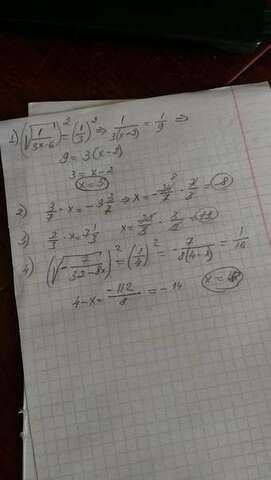 1) (√(1/(3x-6)))² = (1/3)² ⇒ 1/(3(x-2)) = 1/9 ⇒
9 = 3(x-2)
3 = x-2
x=5
2) 3/7 · x = -3 3/7 ⇒ x = -24/7 · 7/3 = -8
3) 2/3 · x = 7 1/3 x = 22/3 · 3/2 = 11
4) (√(-7/(32-8x)))² = (1/4)² = -7/(8(4-x)) = 1/16
4-x = -112/8 = -14 x = 18